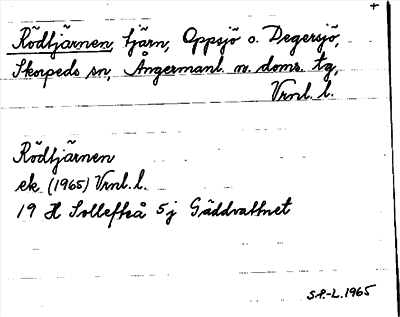 +
Rödtjärnen, tjärn, Oppsjö o. Degersjö,
Skorpeds sn, Ångermanl. n. doms. tg,
Vrnl. l.
Rödtjärnen
ek. (1965) Vrnl. l.
19 H Sollefteå 5j Gäddvattnet
S.P.-L. 1965